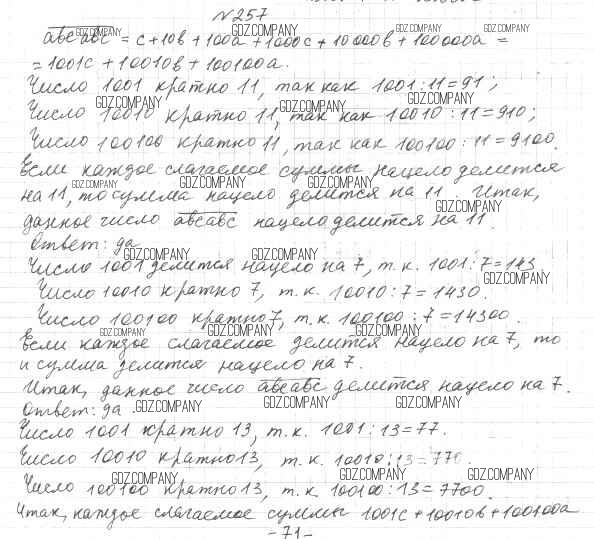 №257
abcabc = c+10b+100a+1000c+10000b+100000a =
= 1001c + 10010b + 100100a.
Число 1001 кратно 11, так как 1001:11=91;
Число 10010 кратно 11, так как 10010:11=910;
Число 100100 кратно 11, так как 100100:11=9100.
Если каждое слагаемое суммы нацело делится
на 11, то сумма нацело делится на 11. Итак,
данное число abcabc нацело делится на 11.
Ответ: да
Число 1001 делится нацело на 7, т.к. 1001:7=143
Число 10010 кратно 7, т.к. 10010:7=1430.
Число 100100 кратно 7, т.к. 100100:7=14300.
Если каждое слагаемое делится нацело на 7, то
и сумма делится нацело на 7.
Итак, данное число abcabc делится нацело на 7.
Ответ: да.
Число 1001 кратно 13, т.к. 1001:13=77.
Число 10010 кратно 13, т.к. 10010:13=770.
Число 100100 кратно 13, т.к. 100100:13=7700.
Итак, каждое слагаемое суммы 1001c+10010b+100100a
-71-
GDZ.COMPANY